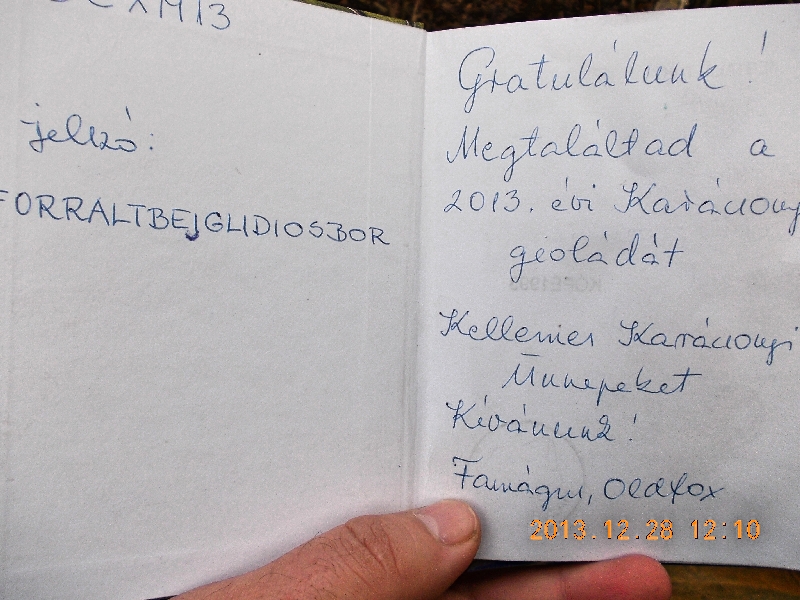 XM13
jelszó:
FORRALTBEJGLIDIOSBOR
Gratulálunk!
Megtaláltad a
2013. évi Karácsonyi
geoládát
Kellemes Karácsonyi
Ünnepeket
Kívánunk!
Oldfox
2013.12.28 12:10